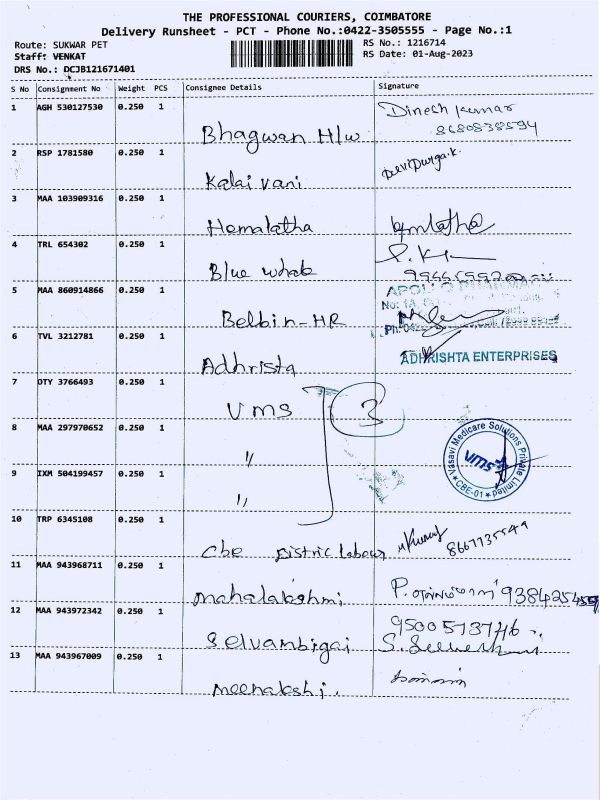 THE PROFESSIONAL COURIERS, COIMBATORE
Delivery Runsheet - PCT - Phone No.:0422-3505555 - Page No.:1
Route: SUKWAR PET
RS No.: 1216714
Staff: VENKAT
RS Date: 01-Aug-2023
DRS No.: DCJB121671401
S No Consignment No Weight PCS Consignee Details Signature
1 AGH 530127530 0.250 1 Bhagwan H/w Dinesh Kumar
8680838594
2 RSP 1781580 0.250 1 Kalai vani
3 MAA 103909316 0.250 1 Hemalatha
4 TRL 654302 0.250 1 Blue whale
5 MAA 860914866 0.250 1 Belbin-HR
6 TVL 3212781 0.250 1 Adhrista ADHRISHTA ENTERPRISES
7 OTY 3766493 0.250 1 VMS 3
8 MAA 297970652 0.250 1 " Vasavi Medicare Solutions Private Limited
vms
* CBE-01 *
9 IXM 504199457 0.250 1 "
10 TRP 6345108 0.250 1 Cbe Distric labour
11 MAA 943968711 0.250 1 Mahalakshmi
12 MAA 943972342 0.250 1 Selvambigai
13 MAA 943967009 0.250 1 Meenakshi.